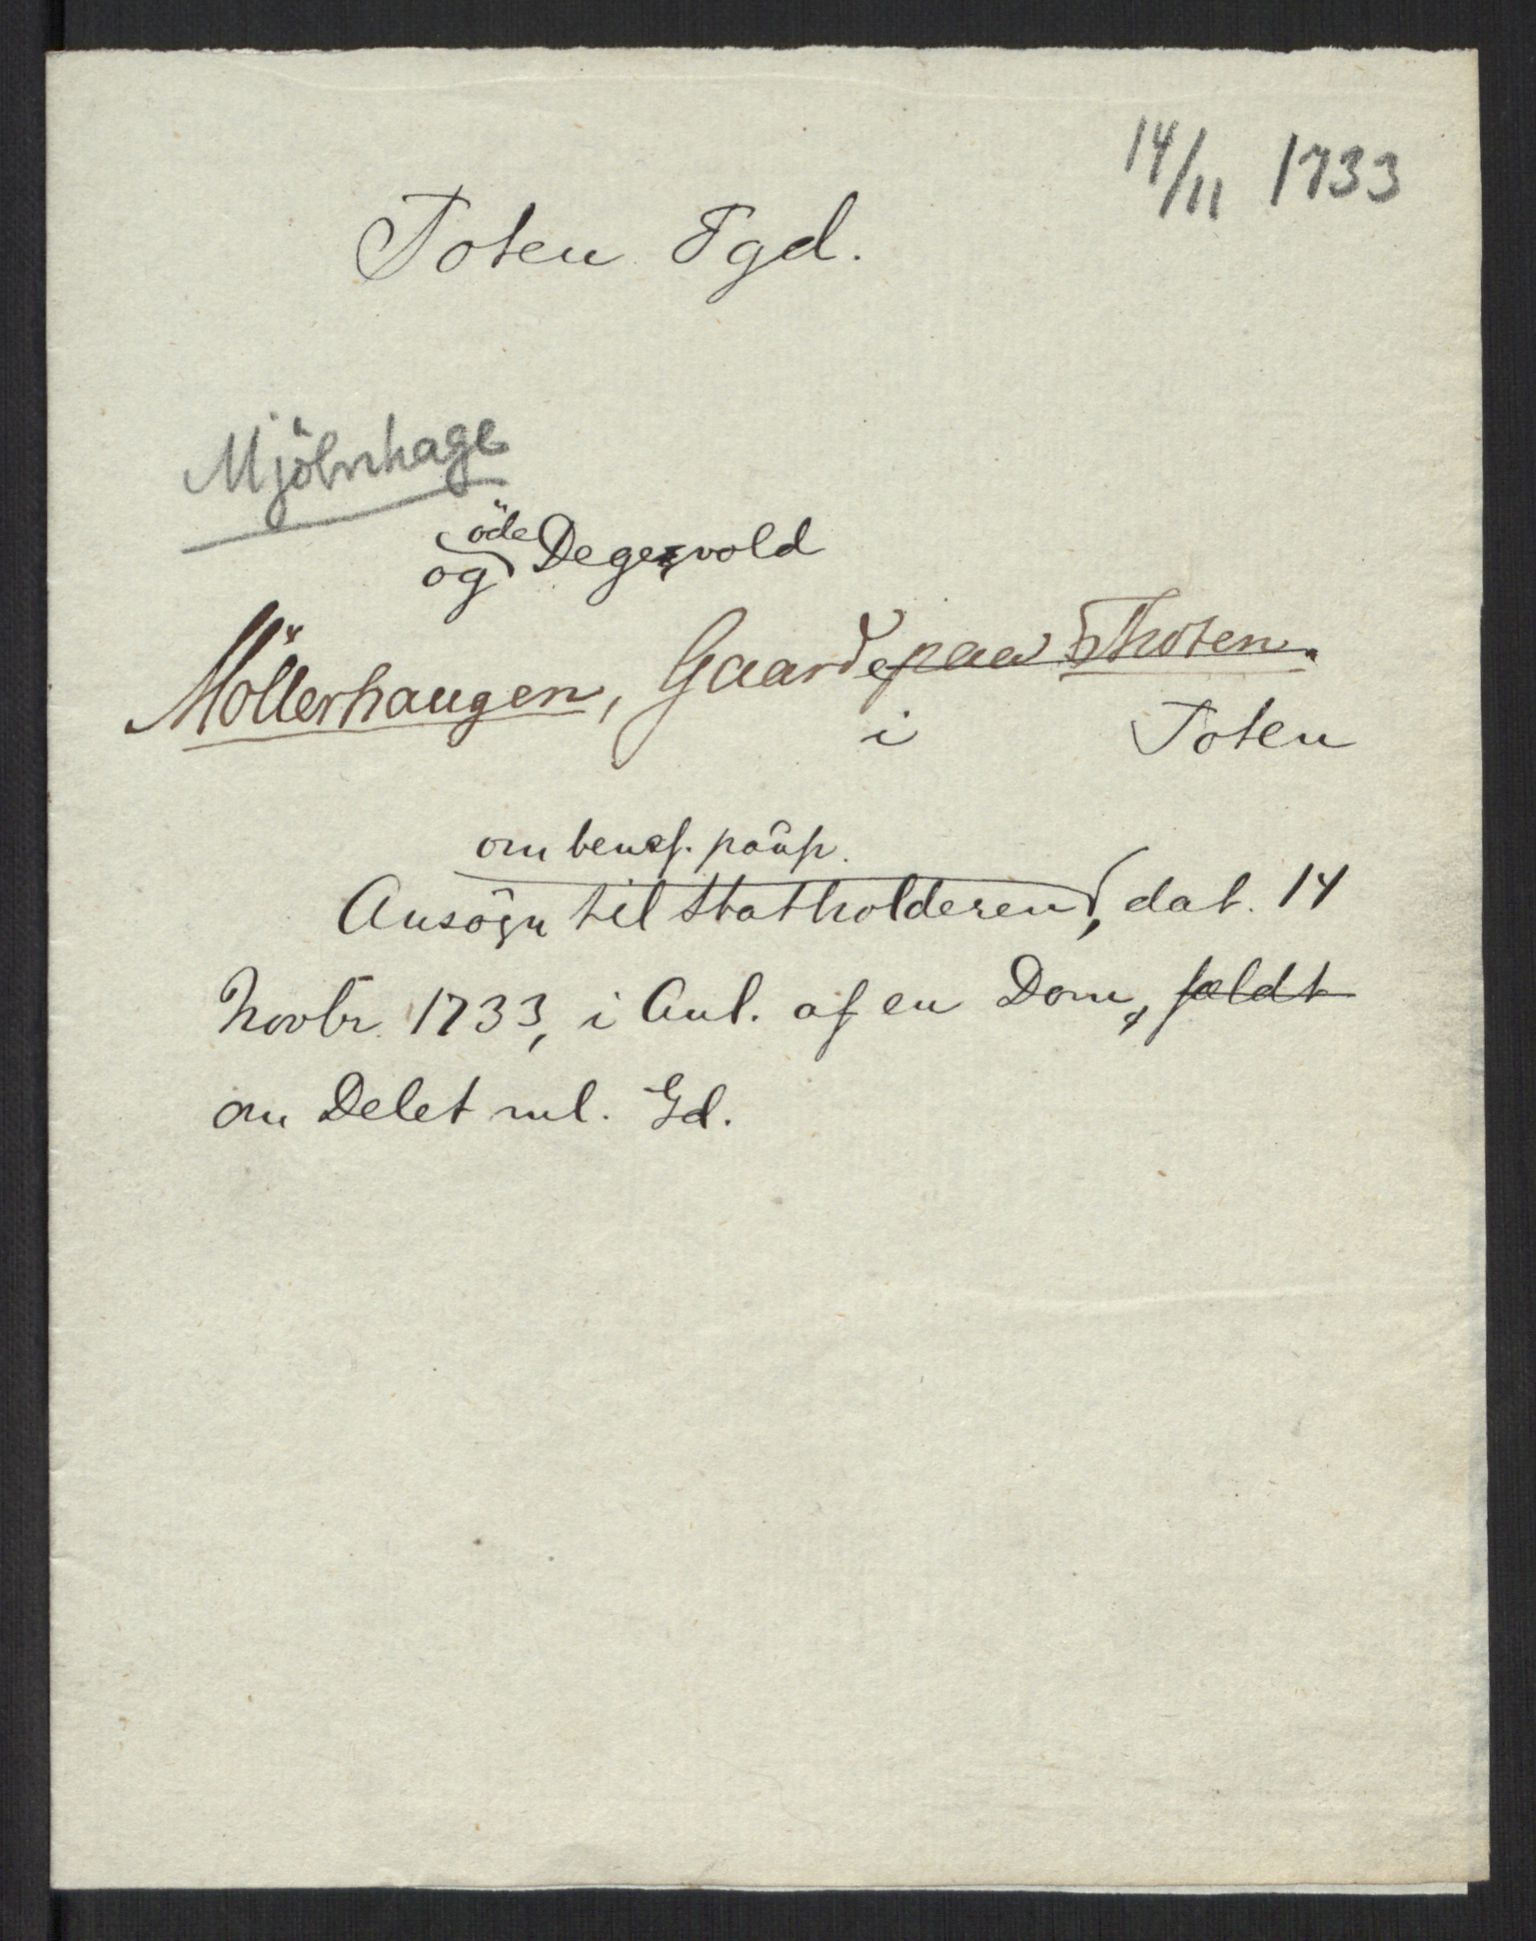 14/11 1733
Toten Tgd.
Mjölnhage
öde
og Degervold
Möllerhaugen, Gaarde paa Thoten.
i Toten
om benef. paup.
Ansögn til Statholderen, dat. 14
Novbr. 1733, i Anl. af en Dom, fældt
om Delet ml. Gd.